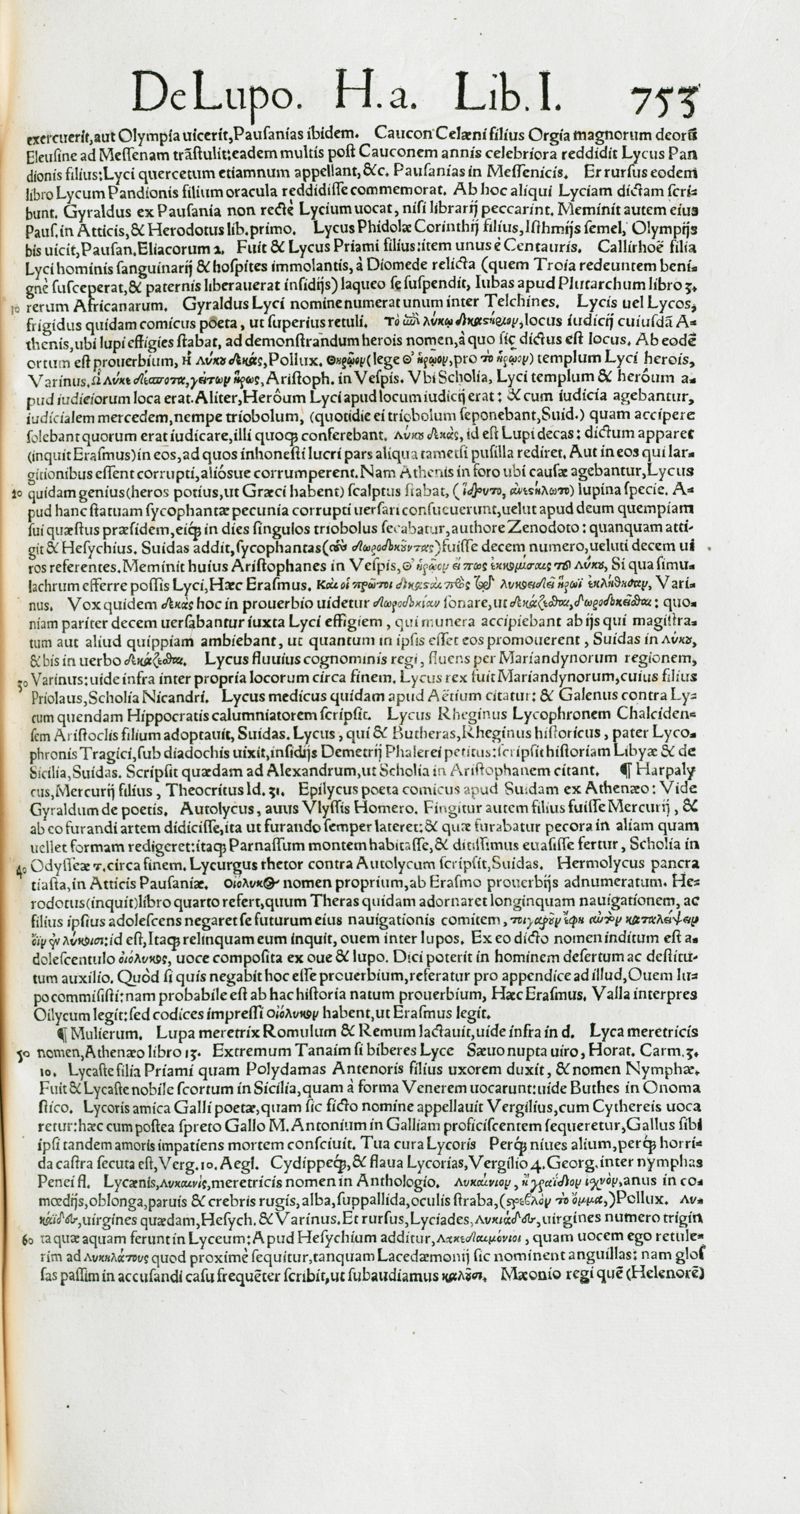 De Lupo. H.a. Lib. I. 753
exercuerit, aut Olympia uicerit, Pausanias ibidem. Caucon Celæni filius Orgia magnorum deorũ
Eleusine ad Messenam trãstulit: eadem multis post Cauconem annis celebriora reddidit Lycus Pan
dionis filius: Lyci quercetum etiamnum appellant, &c. Pausanias in Messenicis. Er rursus eodem
libro Lycum Pandionis filium oracula reddidisse commemorat. Ab hoc aliqui Lyciam dictam scri-
bunt. Gyraldus ex Pausania non rectè Lycium uocat, nisi librarij peccarint. Meminit autem eius
Paus. in Atticis, & Herodotus lib. primo. Lycus Phidolæ Corinthij filius, Isthmijs semel, Olympijs
bis uicit, Pausan. Eliacorum 2. Fuit & Lycus Priami filius: item unus è Centauris. Callirhoë filia
Lyci hominis sanguinarij & hospites immolantis, à Diomede relicta (quem Troia redeuntem beni-
gnè susceperat, & paternis liberauerat insidijs) laqueo sę suspendit, Iubas apud Plutarchum libro 3.
10 rerum Africanarum. Gyraldus Lyci nomine numerat unum inter Telchines. Lycis uel Lycos,
frigidus quidam comicus poëta, ut superius retuli. locus iudicij cuiusdã A-
thenis, ubi lupi effigies stabat, ad demonstrandum herois nomen, à quo sic dictus est locus. Ab eodẽ
ortum est prouerbium, Η Λύκου δεκὰς, Pollux. Θηρῷον (lege Θ' ἡρῷον, pro τὸ ἡρῷον) templum Lyci herois,
Varinus. Ω Λύκε δέσποτα, γείτων ἥρως, Aristoph. in Vespis. Vbi Scholia, Lyci templum & herôum a-
pud iudiciorum loca erat. Aliter, Herôum Lyci apud locum iudicij erat: & cum iudicia agebantur,
iudicialem mercedem, nempe triobolum, (quotidie ei triobolum seponebant, Suid.) quam accipere
solebant quorum erat iudicare, illi quoq; conferebant. Λύκου δεκὰς, id est Lupi decas: dictum apparet
(inquit Erasmus) in eos, ad quos inhonesti lucri pars aliqua tametsi pusilla rediret. Aut in eos qui lar-
gitionibus essent corrupti, aliósue corrumperent. Nam Athenis in foro ubi causæ agebantur, Lycus
20 quidam genius (heros potius, ut Græci habent) scalptus stabat, lupina specie. A-
pud hanc statuam sycophantæ pecunia corrupti uersari consueuerunt, uelut apud deum quempiam
sui quæstus præsidem, eiq; in dies singulos triobolus secabatur, authore Zenodoto: quanquam atti-
git & Hesychius. Suidas addit, sycophantas (τοὺς δωροδοκοῦντας) fuisse decem numero, ueluti decem ui
ros referentes. Meminit huius Aristophanes in Vespis, Si qua simu-
lachrum efferre possis Lyci, Hæc Erasmus. Vari-
nus. Vox quidem δεκὰς hoc in prouerbio uidetur sonare, ut quo-
niam pariter decem uersabantur iuxta Lyci effigiem, qui munera accipiebant ab ijs qui magistra-
tum aut aliud quippiam ambiebant, ut quantum in ipsis esset eos promouerent, Suidas in Λύκου,
& bis in uerbo δεκάζεσθαι. Lycus fluuius cognominis regi, fluens per Mariandynorum regionem,
30 Varinus: uide infra inter propria locorum circa finem. Lycus rex fuit Mariandynorum, cuius filius
Priolaus, Scholia Nicandri. Lycus medicus quidam apud Aëtium citatur: & Galenus contra Ly-
cum quendam Hippocratis calumniatorem scripsit. Lycus Rheginus Lycophronem Chalciden-
sem Aristoclis filium adoptauit, Suidas. Lycus, qui & Butheras, Rheginus historicus, pater Lyco-
phronis Tragici, sub diadochis uixit, insidijs Demetrij Phalerei petitus: scripsit historiam Libyæ & de
Sicilia, Suidas. Scripsit quædam ad Alexandrum, ut Scholia in Aristophanem citant. ¶ Harpaly
cus, Mercurij filius, Theocritus Id. 31. Epilycus poëta comicus apud Suidam ex Athenæo: Vide
Gyraldum de poetis. Autolycus, auus Vlyssis Homero. Fingitur autem filius fuisse Mercurij, &
ab eo furandi artem didicisse, ita ut furando semper lateret: & quæ furabatur pecora in aliam quam
uellet formam redigeret: itaq; Parnassum montem habitasse, & ditissimus euasisse fertur, Scholia in
40 Odysseæ τ. circa finem. Lycurgus rhetor contra Autolycum scripsit, Suidas. Hermolycus pancra
tiasta, in Atticis Pausaniæ. Οιόλυκος nomen proprium, ab Erasmo prouerbijs adnumeratum. He-
rodotus (inquit) libro quarto refert, quum Theras quidam adornaret longinquam nauigationem, ac
filius ipsius adolescens negaret se futurum eius nauigationis comitem, τοιγαροῦν ἔφη αὐτὸν καταλείψειν
ὄϊν ἐν λύκοισι: id est, Itaq; relinquam eum inquit, ouem inter lupos. Ex eo dicto nomen inditum est a-
dolescentulo οἰόλυκος, uoce composita ex oue & lupo. Dici poterit in hominem desertum ac destitu-
tum auxilio. Quòd si quis negabit hoc esse prouerbium, referatur pro appendice ad illud, Ouem lu-
po commisisti: nam probabile est ab hac historia natum prouerbium, Hæc Erasmus. Valla interpres
Oilycum legit: sed codices impressi Οιόλυκον habent, ut Erasmus legit.
¶ Mulierum. Lupa meretrix Romulum & Remum lactauit, uide infra in d. Lyca meretricis
50 nomen, Athenæo libro 13. Extremum Tanaim si biberes Lyce Sæuo nupta uiro, Horat. Carm. 3.
10. Lycaste filia Priami quam Polydamas Antenoris filius uxorem duxit, & nomen Nymphæ.
Fuit & Lycaste nobile scortum in Sicilia, quam à forma Venerem uocarunt: uide Buthes in Onoma
stico. Lycoris amica Galli poetæ, quam sic ficto nomine appellauit Vergilius, cum Cythereis uoca
retur: hæc cum postea spreto Gallo M. Antonium in Galliam proficiscentem sequeretur, Gallus sibi
ipsi tandem amoris impatiens mortem consciuit. Tua cura Lycoris Perq; niues alium, perq; horri-
da castra secuta est, Verg. 10. Aegl. Cydippeq;, & flaua Lycorias, Vergilio 4. Georg. inter nymphas
Penei fl. Lycænis, Λυκαινὶς, meretricis nomen in Anthologio. Λυκαίνιον, anus in co-
mœdijs, oblonga, paruis & crebris rugis, alba, suppallida, oculis straba, (στρεβλὸν τὸ ὄμμα,) Pollux. Λυ-
uirgines quædam, Hesych. & Varinus. Et rursus, Lyciades, uirgines numero trigin
60 ta quæ aquam ferunt in Lyceum: Apud Hesychium additur, Λακεδαιμόνιοι, quam uocem ego retule-
rim ad quod proximè sequitur, tanquam Lacedæmonij sic nominent anguillas: nam glos
sas passim in accusandi casu frequẽter scribit, ut subaudiamus καλοῦσι. Mæonio regi quẽ (Helenorẽ)